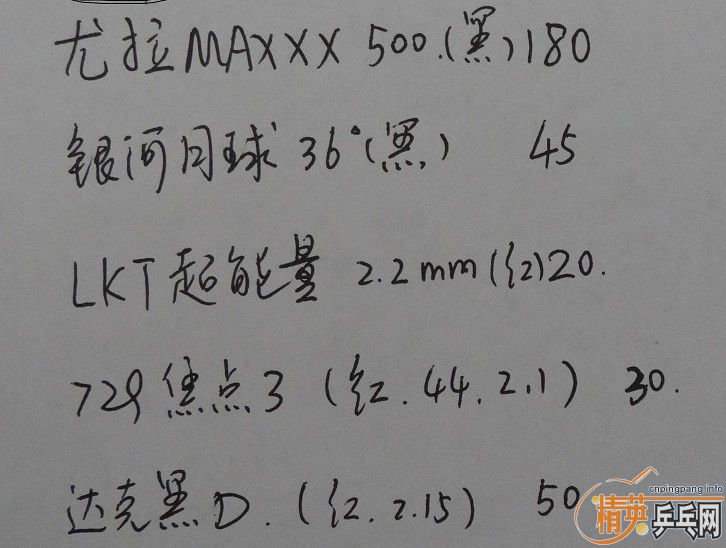 尤拉MAXXX 500.(黑)180
银河月球 36°(黑) 45
LKT超能量 2.2mm(红)20.
729焦点3 (红.44.2.1) 30.
达克黑D. (红.2.15) 50
cnpingpang.info
精英乒乓网